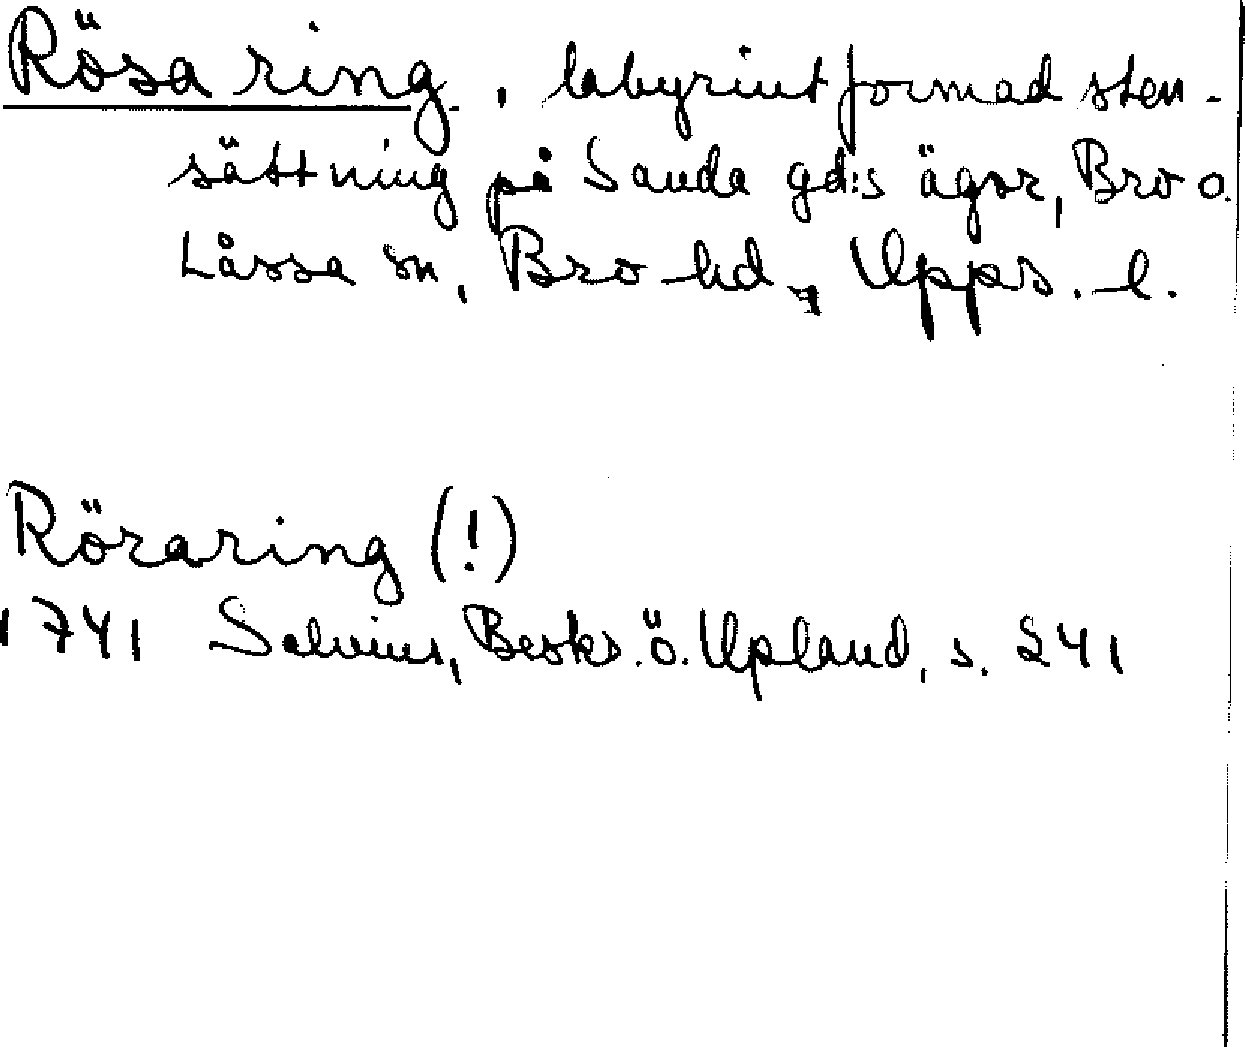 Rösa ring, labyrintformad sten-
sättning på Sanda gd:s ägor, Bro o.
Låssa sn, Bro hd, Upps. l.
Röraring (!)
1741 Salvius, Beskr. ö. Upland, s. 241